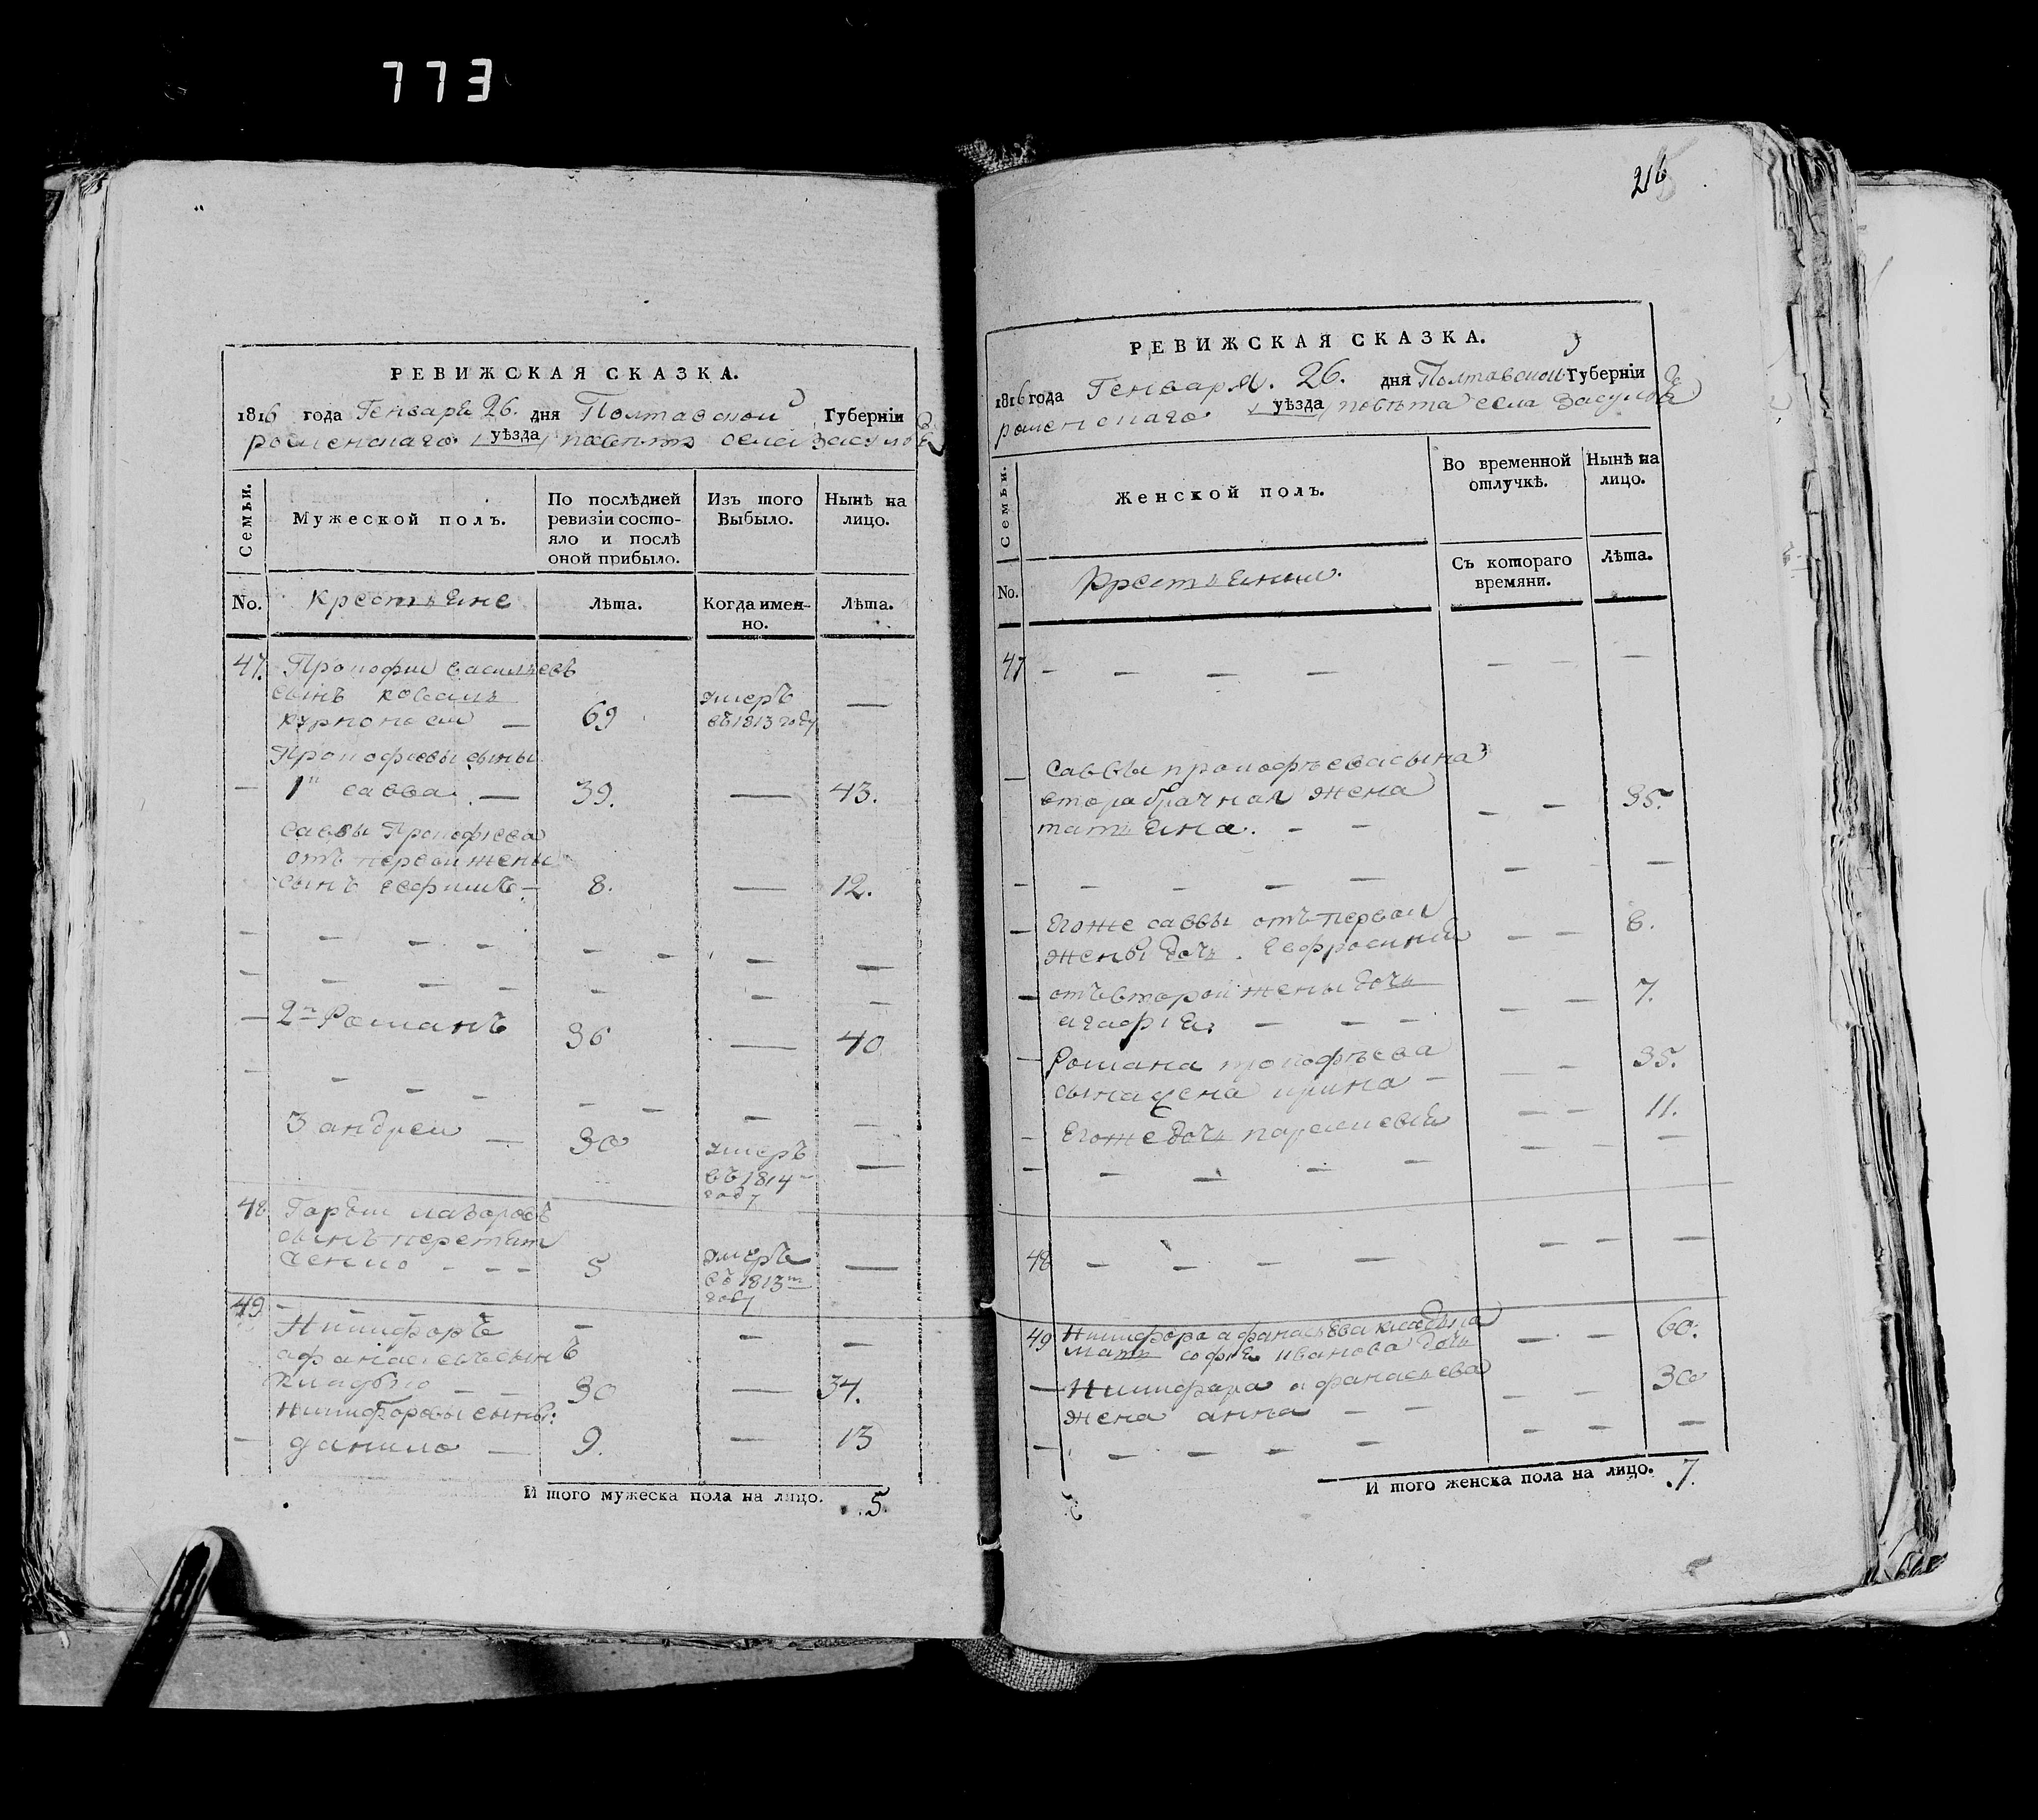 773
216
РЕВИЖСКАЯ СКАЗКА.
1816 года Генваря 26. дня Полтавской Губерніи
роменского уѣзда повѣта села Засулья
Семьи.
Мужеской полъ.
По послѣдней ревизіи состо-
яло и послѣ
оной прибыло.
Изъ того
Выбыло.
Нынѣ на
лицо.
No.
крестьяне
Лѣта.
Когда имен-
но.
Лѣта.
47. Прокофий васильевъ
сынъ коваль
69 умеръ
въ 1813 году —
Прокофиевы сыны
— 1й савва — 39. — 43.
саввы Прокофиева
отъ первой жены
сынъ евфимъ — 8. — 12.
— 2й Романъ 36 — 40
3 андрей — 30 умеръ —
въ 1814
году
48 лазоровъ
сынъ
5 умеръ —
въ 1813
году
49.
Никифоръ
афанасиевъ сынъ
Кладько — — 30 — 34.
никифоровы сыны:
— данило — 9. — 13
И того мужеска пола на лицо. 5.
РЕВИЖСКАЯ СКАЗКА.
1816 года Генваря. 26. дня Полтавской Губерніи
роменского уѣзда повѣта села Засулья
Семьи.
Женской полъ.
Во временной
отлучкѣ.
Нынѣ на
лицо.
No.
Крестьянки.
Съ котораго
времяни.
Лѣта.
47 — — — —
— саввы прокофьева сына
вторабрачная жена
татьяна. — — 35.
— Егоже саввы отъ первой
жены дочь. Евфросиния — — 6.
— отъ второй жены дочь
агафия — — — 7.
— Романа прокофьева
сына жена ирина — 35.
— Егоже дочь парасковия — — 11.
48 — — — —
49 Никифора афанасьева кладька
мать софия иванова дочь — — 60.
— Никифора афанасьева
жена анна — — 30
И того женска пола на лицо. 7.